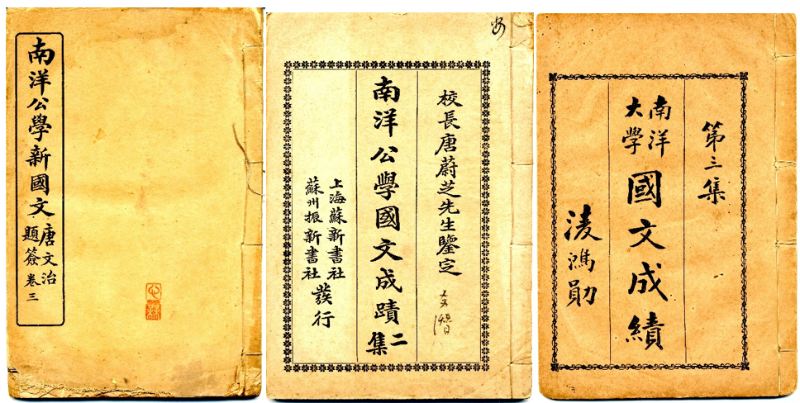 南洋公學新國文
唐文治
題簽
卷三
校長唐蔚芝先生鑒定
南洋公學國文成蹟二集
上海蘇新書社
蘇州振新書社
發行
第三集
南洋
大學
國文成績
淩鴻勛